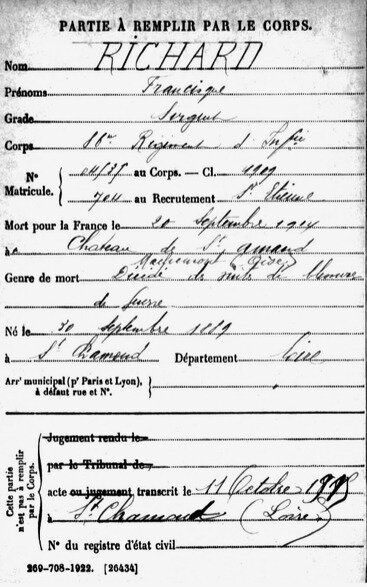 PARTIE À REMPLIR PAR LE CORPS.
Nom RICHARD
Prénoms Francisque
Grade Sergent
Corps 86me Régiment d'Infie
N° Matricule. 04535 au Corps. — Cl. 1909
704 au Recrutement St Etienne
Mort pour la France le 20 Septembre 1914
à Chateau de St Amand
Machemont (Oise)
Genre de mort Décédé des suites de blessures
de Guerre
Né le 30 Septembre 1889
à St Chamond Département Loire
Arrt municipal (pr Paris et Lyon), à défaut rue et N°.
Cette partie n'est pas à remplir par le Corps.
Jugement rendu le
par le Tribunal de
acte ou jugement transcrit le 11 Octobre
à St Chamond (Loire)
N° du registre d'état civil
269-708-1922. [26434]